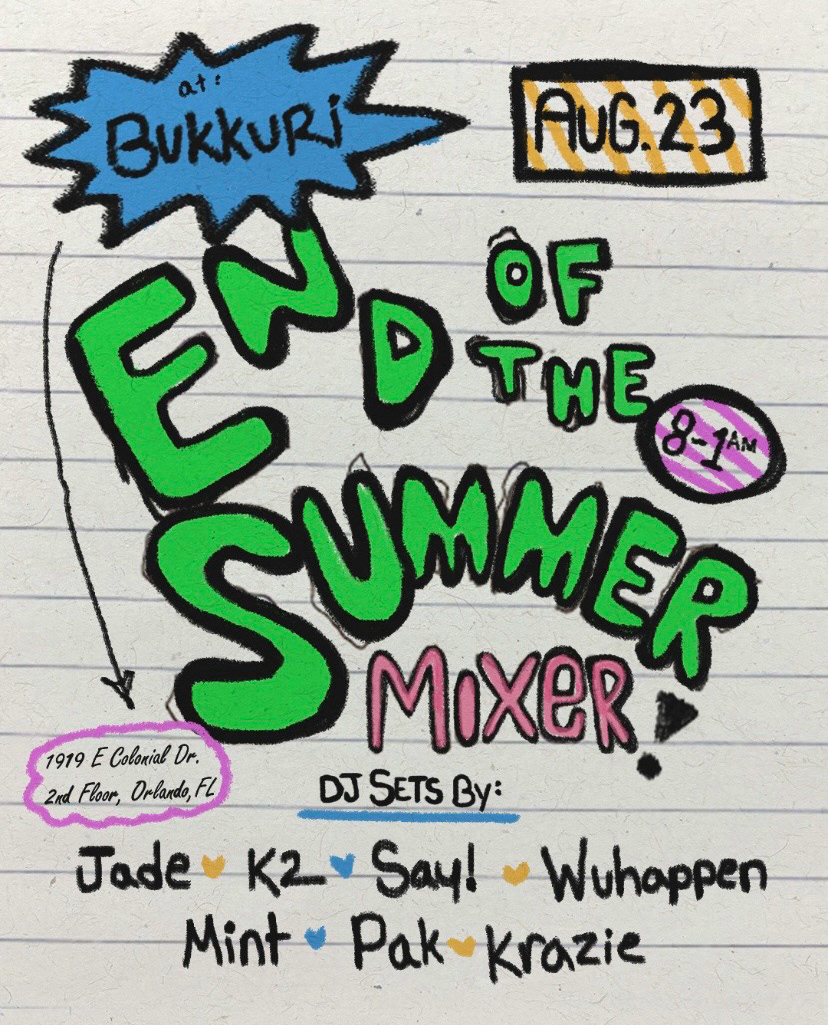 at:
BUKKURi
AUG. 23
END
OF
THE
8-1AM
SUMMER
MIXeR!
1919 E Colonial Dr.
2nd Floor, Orlando, FL
DJ SETS By:
Jade K2 Say! Wuhappen
Mint Pak Krazie